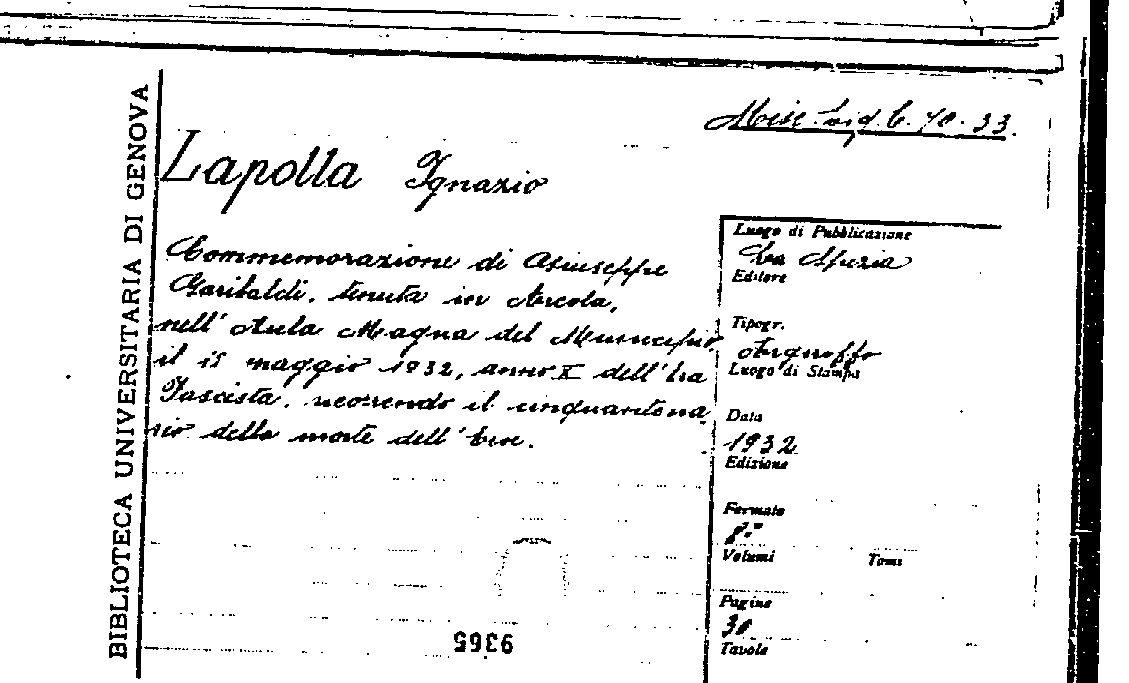 BIBLIOTECA UNIVERSITARIA DI GENOVA
Misc. Lig. C. 70. 33.
Lapolla Ignazio
Commemorazione di Giuseppe
Garibaldi, tenuta in Arcola,
nell'Aula Magna del Municipio
il 15 maggio 1932, anno X dell'Era
Fascista, ricorrendo il cinquantena
rio della morte dell'Eroe.
Luogo di Pubblicazione
La Spezia
Editore
Tipogr.
Luogo di Stampa
Data
1932
Edizione
Formato
8.°
Volumi Tomi
Pagine
30
Tavole
9365